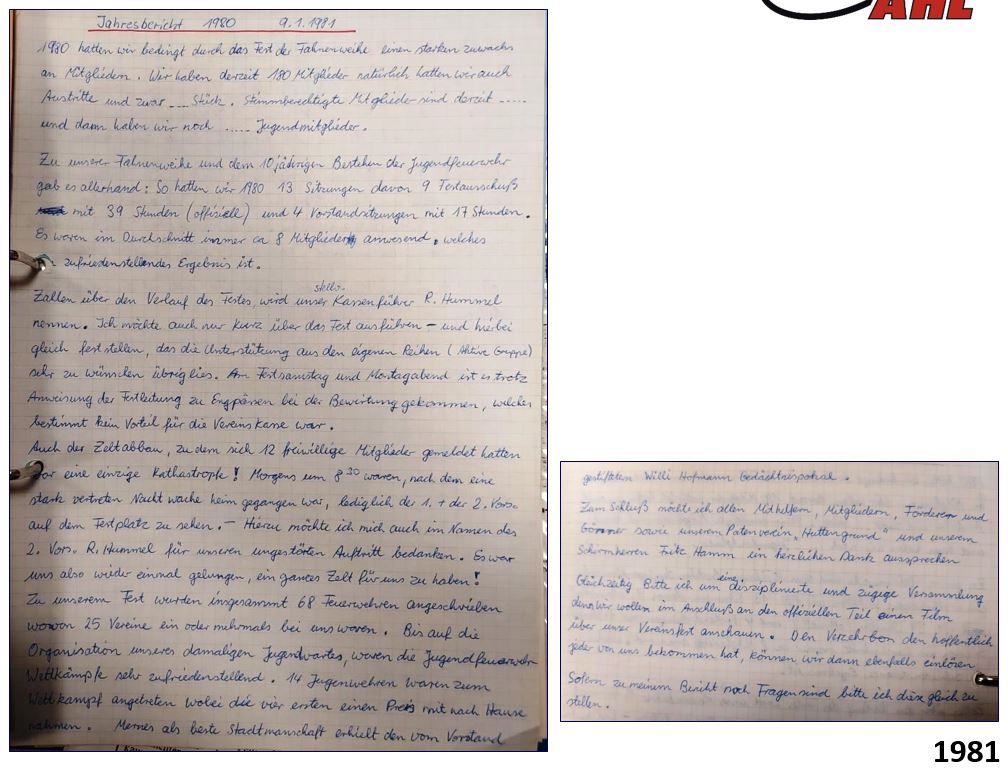 AHL
Jahresbericht 1980 9.1.1981
1980 hatten wir bedingt durch das Fest der Fahnenweihe einen starken zuwachs
an Mitgliedern. Wir haben derzeit 180 Mitglieder natürlich hatten wir auch
Austritte und zwar ... Stück. Stimmberechtigte Mitglieder sind derzeit .....
und dann haben wir noch ..... Jugendmitglieder.
Zu unserer Fahnenweihe und dem 10 jährigen Bestehen der Jugendfeuerwehr
gab es allerhand: So hatten wir 1980 13 Sitzungen davon 9 Festausschuß
mit 39 Stunden (offiziell) und 4 Vorstandsitzungen mit 17 Stunden.
Es waren im Durchschnitt immer ca 8 Mitglieder anwesend, welches
zufriedenstellendes Ergebnis ist.
Zahlen über den Verlauf des Festes, wird unser stellv. Kassenführer R. Hummel
nennen. Ich möchte auch nur kurz über das Fest ausführen – und hierbei
gleich feststellen, das die Unterstützung aus den eigenen Reihen (Aktive Gruppe)
sehr zu wünschen übriglies. Am Festsamstag und Montagabend ist es trotz
Anweisung der Festleitung zu Engpässen bei der Bewirtung gekommen, welches
bestimmt kein Vorteil für die Vereinskasse war.
Auch der Zeltabbau, zu dem sich 12 freiwillige Mitglieder gemeldet hatten
war eine einzige Kathastrophe! Morgens um 8 30 waren, nach dem eine
stark vertreten Nachtwache heim gegangen war, lediglich der 1. + der 2. Vors.
auf dem Festplatz zu sehen. – Hierzu möchte ich mich auch im Namen des
2. Vors. R. Hummel für unseren ungestörten Auftritt bedanken. Es war
uns also wieder einmal gelungen, ein ganzes Zelt für uns zu haben!
Zu unserem Fest wurden insgesammt 68 Feuerwehren angeschrieben
wovon 25 Vereine ein oder mehrmals bei uns waren. Bis auf die
Organisation unseres damaligen Jugendwartes, waren die Jugendfeuerwehr
Wettkämpfe sehr zufriedenstellend. 14 Jugenwehren waren zum
Wettkampf angetreten wobei die vier ersten einen Preis mit nach Hause
nahmen. Mernes als beste Stadtmanschaft erhielt den vom Vorstand
gestifteten Willi Hofmann Gedächtnispokal.
Zum Schluß möchte ich allen Mithelfern, Mitgliedern, Förderern und
Gönner sowie unserem Patenverein "Huttengrund" und unserem
Schirmherren Fritz Hamm ein herzlichen Dank aussprechen
Gleichzeitig Bitte ich um eine disziplinierte und zügige Versammlung
denn wir wollen im Anschluß an den offiziellen Teil einen Film
über unser Vereinsfest anschauen. Den Verzehrbon den hoffentlich
jeder von uns bekommen hat, können wir dann ebenfalls einlösen
Sofern zu meinem Bericht noch Fragen sind bitte ich diese gleich zu
stellen.
1981